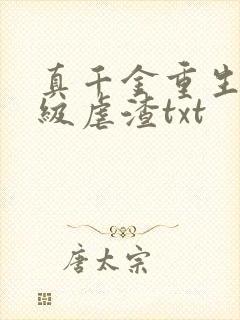 真千金重生
级虐渣txt
唐太宗